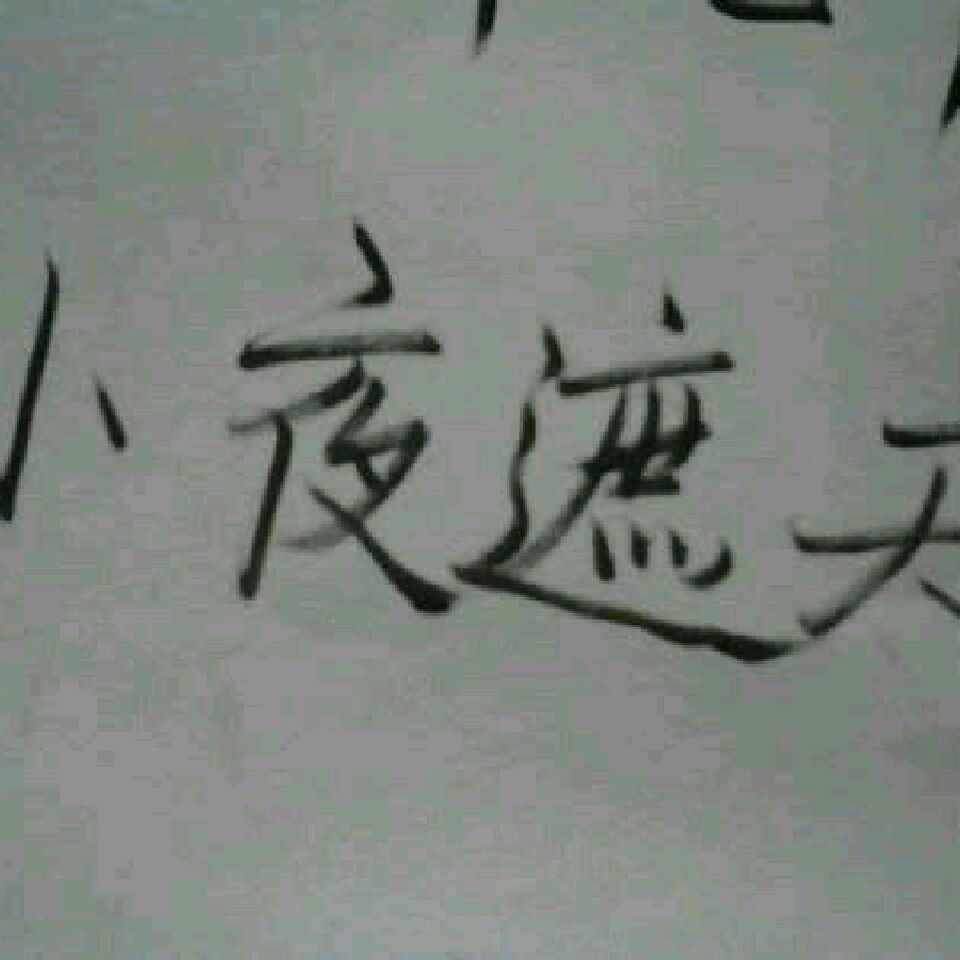 小夜遮天